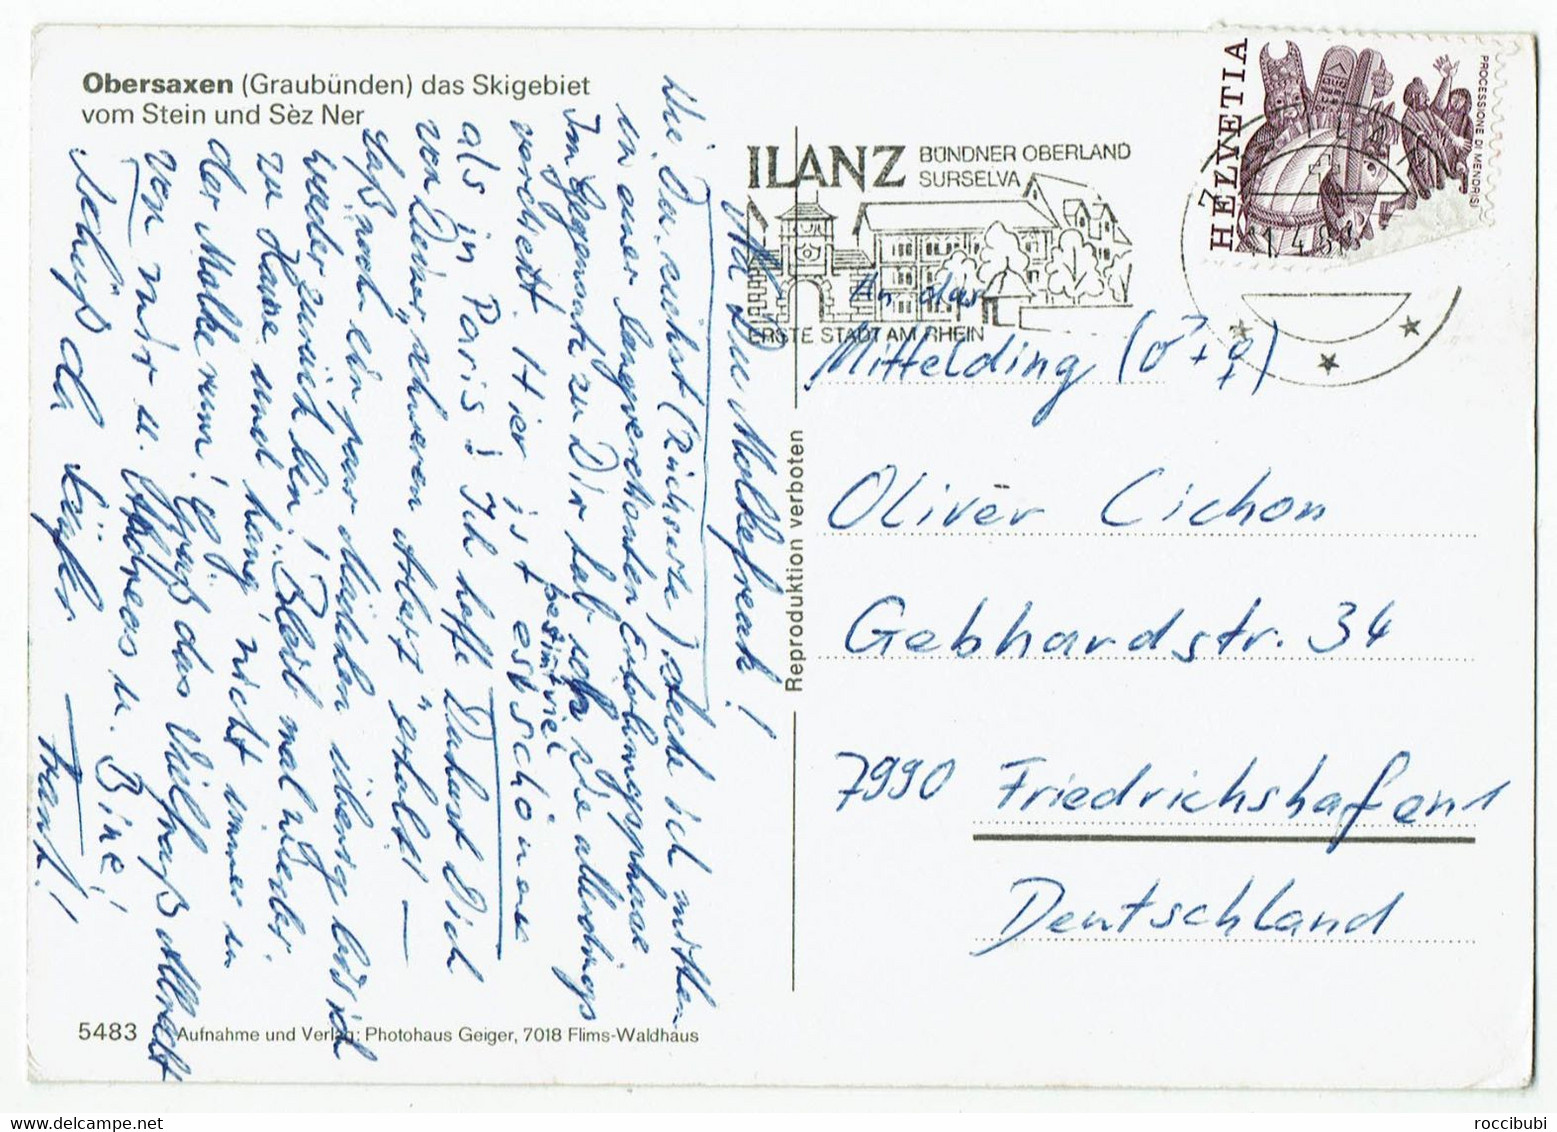 Obersaxen (Graubünden) das Skigebiet
vom Stein und Sèz Ner
Na Du Molkefreak!
Wie Du siehst (Rückseite) stecke ich mitten
in einer langverdienten Erholungsphase
Im Gegensatz zu Dir hab ich sie allerdings
verdient. Hier ist es bestimmt viel schöner
als in Paris! Ich hoffe Du hast Dich
von Deiner "schweren Arbeit" erholt!
Laß noch ein paar Mädchen übrig bis ich
wieder zurück bin! Bleib mal wieder
zu Hause und häng' nicht immer in
der Molke rum! Grüß das Vielfraß Albrecht
von mir u. Andreas u. Bine!
Tschüß da
Frank!!
Reproduktion verboten
5483 Aufnahme und Verlag: Photohaus Geiger, 7018 Flims-Waldhaus
ILANZ BÜNDNER OBERLAND
SURSELVA
ERSTE STADT AM RHEIN
HELVETIA
PROCESSIONE DI MENDRISI
An das
Mittelding (♂ + ♀)
Oliver Cichon
Gebhardstr. 34
7990 Friedrichshafen 1
Deutschland
roccibubi